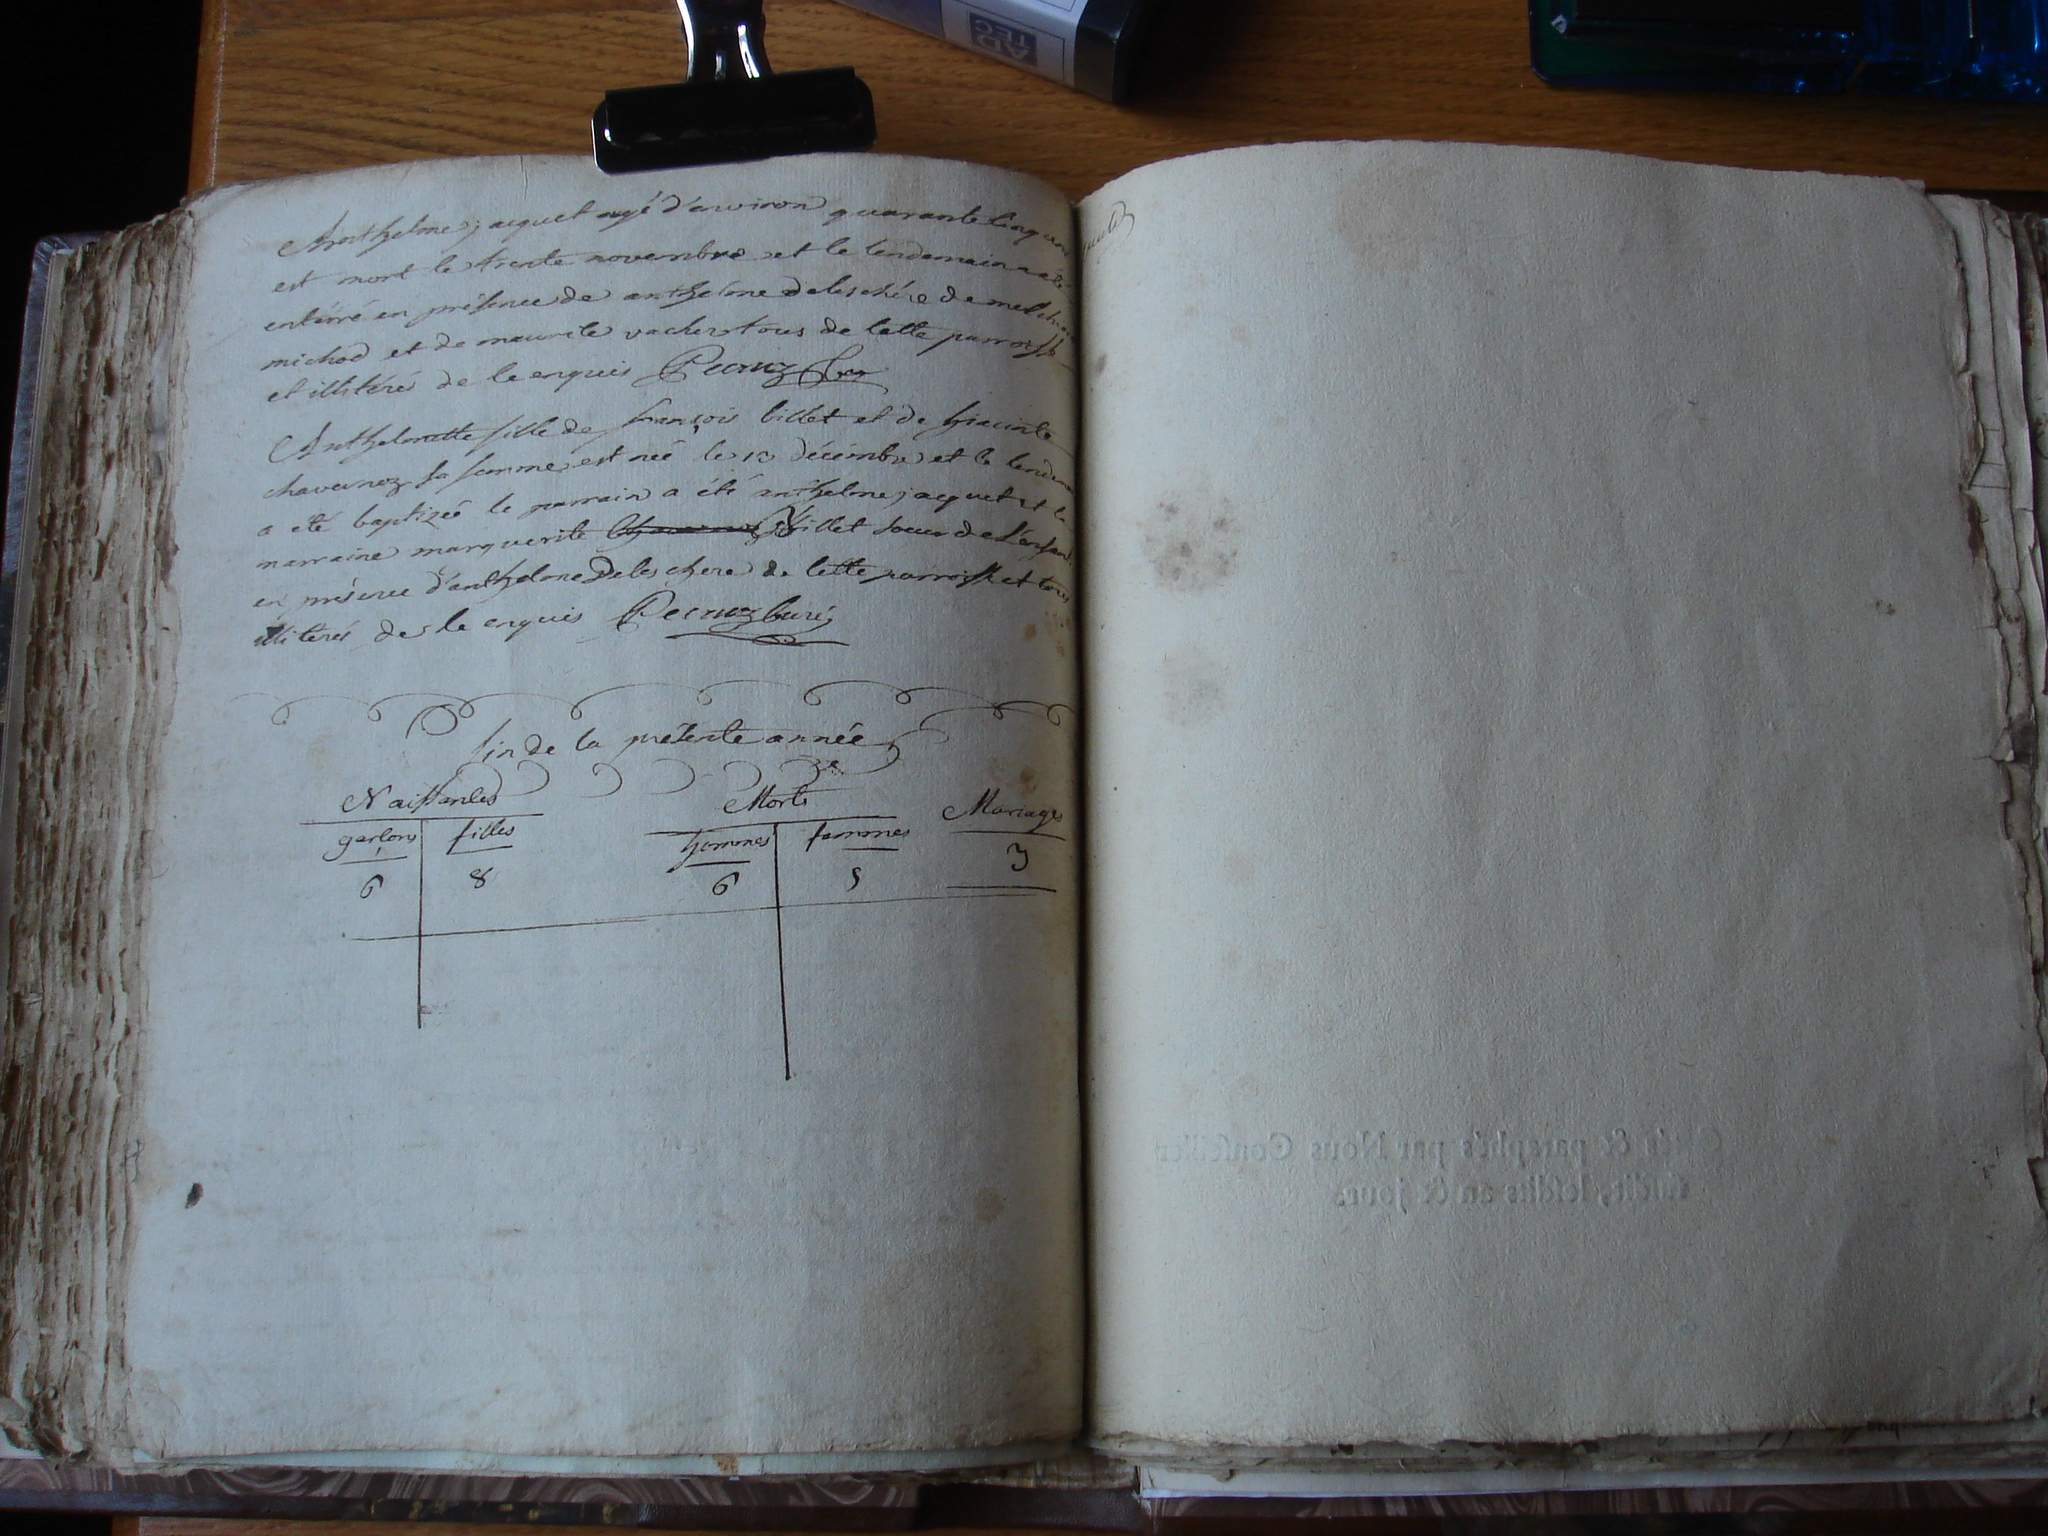 Anthelme jacquet agé d'environ quarante cinq ans
est mort le trente novembre et le lendemain a été
entérré en présence de anthelme deleschére de melchior
michod et de maurile vacher tous de cette parroisse
et illitérés de ce enquis Pecruz Cur
Anthelmette fille de françois billet et de hiacinte
chavanoz sa femme est née le 12 décémbre et le lendemain
a eté baptizée le parrain a été anthelme jacquet et la
marraine marguerite billet soeur de l'enfant
en présence d'anthelme Deleschere de cette parroisse et tous
illitérés de ce enquis Pecruz curé
fin de la présente année
Naissances Morts Mariages
garçons filles hommes femmes
6 8 6 5 3
Cotés & paraphés par Nous Conseiller
susdit, lesdits an & jour.
AR
TEC